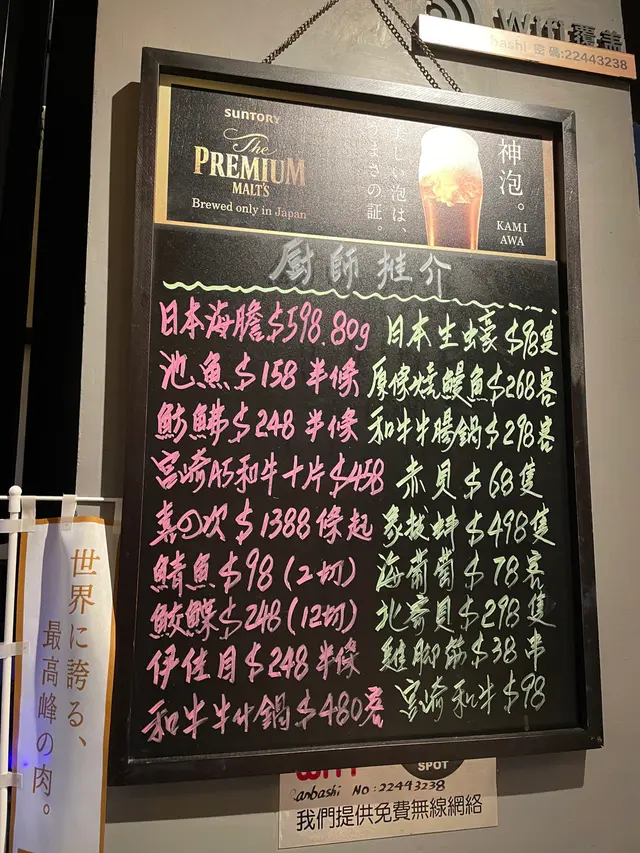 Wifi覆盖
bashi 密碼:22443238
SUNTORY
The
PREMIUM
MALT'S
Brewed only in Japan
美しい泡は、
うまさの証。
神泡。
KAMI
AWA
廚師推介
日本海膽$598.80g
池魚$158半條
魴鮄$248半條
宮崎A5和牛十片$458
喜の次$1388條起
鯖魚$98(2切)
鮫鰈$248(12切)
伊佳月$248半條
和牛牛什鍋$480客
日本生蠔$98隻
原條燒鰻魚$268客
和牛牛腸鍋$298客
赤貝$68隻
象拔蚌$498隻
海葡萄$78客
北寄貝$298隻
雞腳筋$38串
宮崎和牛$98
世界に誇る、
最高峰の肉。
WiFi
SPOT
anbashi No:22443238
我們提供免費無線網絡